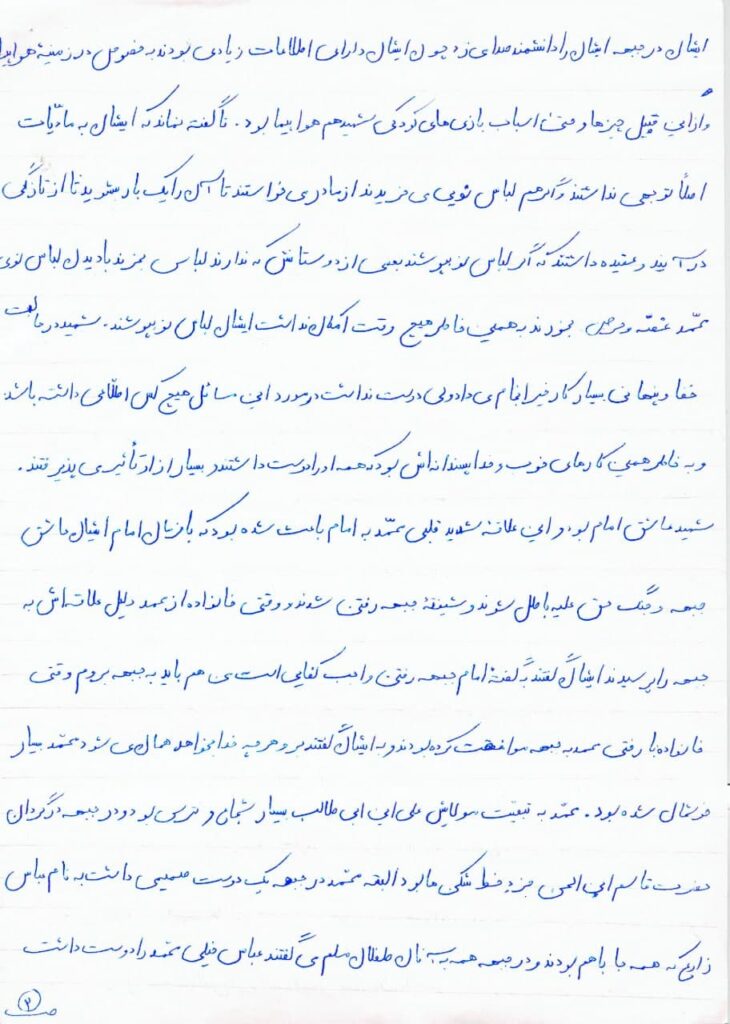 ایشان در جبهه ایشان را دانشمند صدا می زد چون ایشان دارای اطلاعات زیادی بودند به خصوص در زمینهٔ هواپیما
و از این قبیل چیزها و حتی اسباب بازی های کودکی شهید هم هواپیما بود. ناگفته نماند که ایشان به مادّیات
اصلاً توجهی نداشتند و اگر هم لباس نویی می خریدند از مادر می خواستند تا آن را یک بار بشوید تا از تازگی
در آیند و عقیده داشتند که اگر لباس نو بپوشند بعضی از دوستانش که ندارند لباس بخرند با دیدن لباس نوی
محمّد غصّه بخورند به همین خاطر هیچ وقت امکان نداشت ایشان لباس نو بپوشند. شهید در حالت
خفا و پنهانی بسیار کار خیر انجام می داد ولی دوست نداشت در مورد این مسائل هیچ کس اطّلاعی داشته باشد
و به خاطر همین کارهای خوب و خداپسندانه اش بود که همه او را دوست داشتند و بسیار از او تأثیر می پذیرفتند.
شهید عاشق امام بود و این علاقهٔ شدید قلبی محمّد به امام باعث شده بود که با فرمان امام ایشان عاشق
جبهه و جنگ حق علیه باطل شوند و شیفتهٔ جبهه رفتن شدند و وقتی خانواده از محمد دلیل علاقه اش به
جبهه را پرسیدند ایشان گفتند به گفتهٔ امام جبهه رفتن واجب کفایی است من هم باید به جبهه بروم وقتی
خانواده با رفتن محمد به جبهه موافقت کرده بودند و به ایشان گفتند برو هر چه خدا بخواهد همان می شود محمّد بسیار
خوشحال شده بود. محمّد به تبعیّت مولایش علی ابن ابی طالب بسیار شجاع و نترس بود و در جبهه در گردان
حضرت قاسم ابن الحسن جزء خط شکن ها بود البته محمّد در جبهه یک دوست صمیمی داشت به نام عباس
زارع که همه جا با هم بودند و در جبهه همه به آنان طفلان مسلم می گفتند عباس خیلی محمّد را دوست داشت
ص ۲